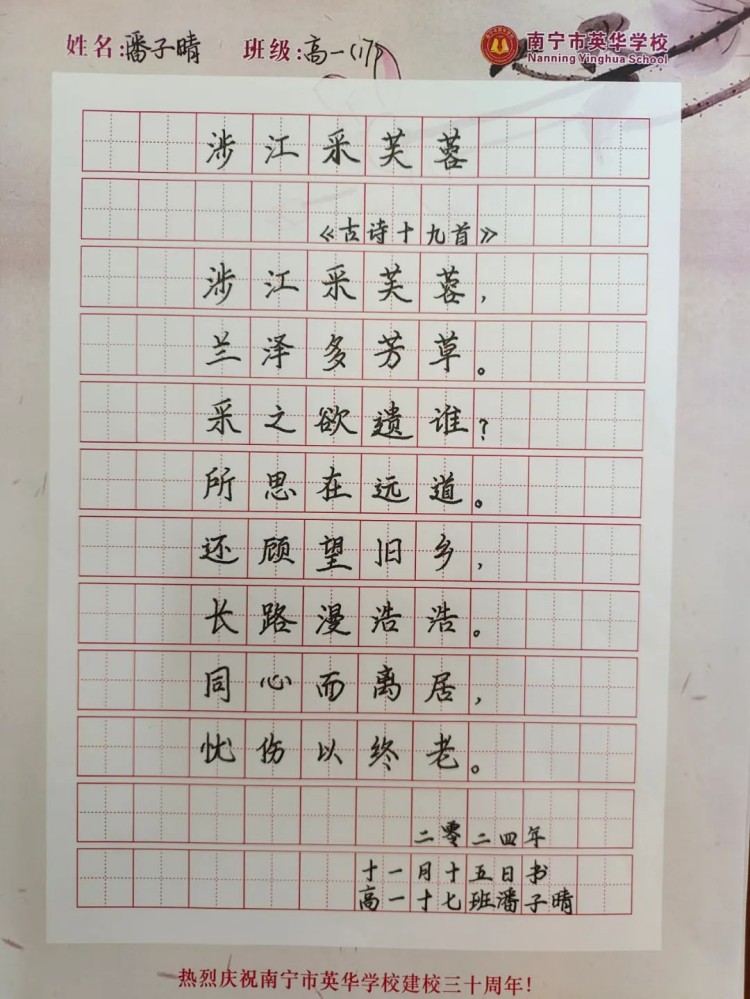 姓名:潘子晴 班级:高一(17) 南宁市英华学校
Nanning Yinghua School
涉江采芙蓉
《古诗十九首》
涉江采芙蓉，
兰泽多芳草。
采之欲遗谁？
所思在远道。
还顾望旧乡，
长路漫浩浩。
同心而离居，
忧伤以终老。
二零二四年
十一月十五日书
高一十七班潘子晴
热烈庆祝南宁市英华学校建校三十周年！